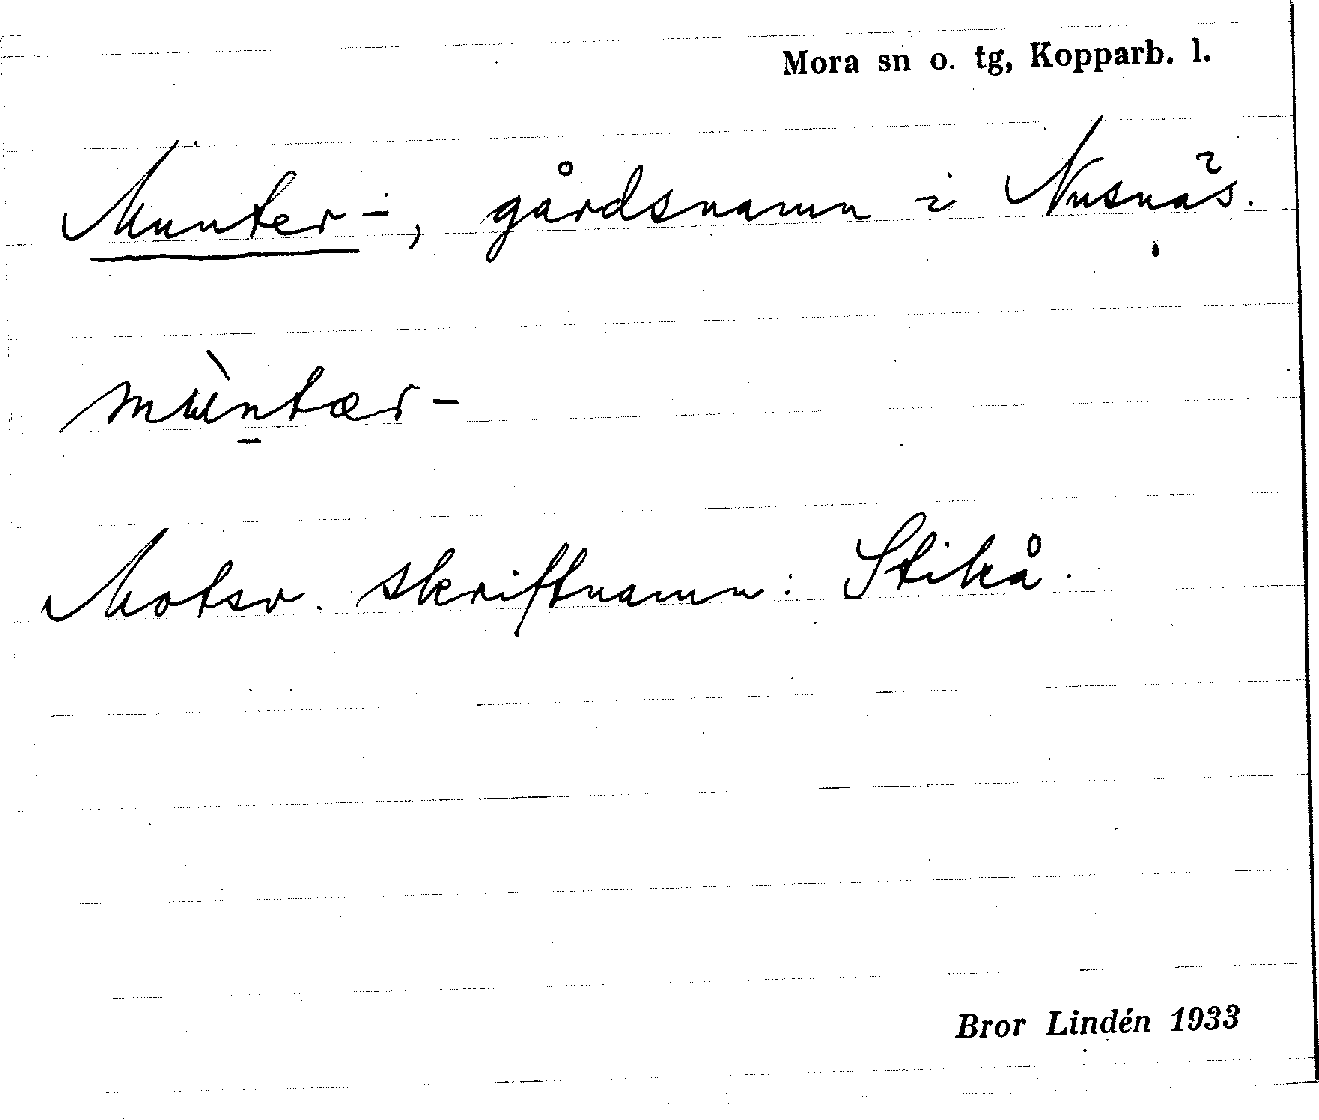 Mora sn o. tg, Kopparb. l.
Munter-, gårdsnamn i Nusnäs.
mùn̠tær-
Motsv. skriftnamn: Stikå.
Bror Lindén 1933